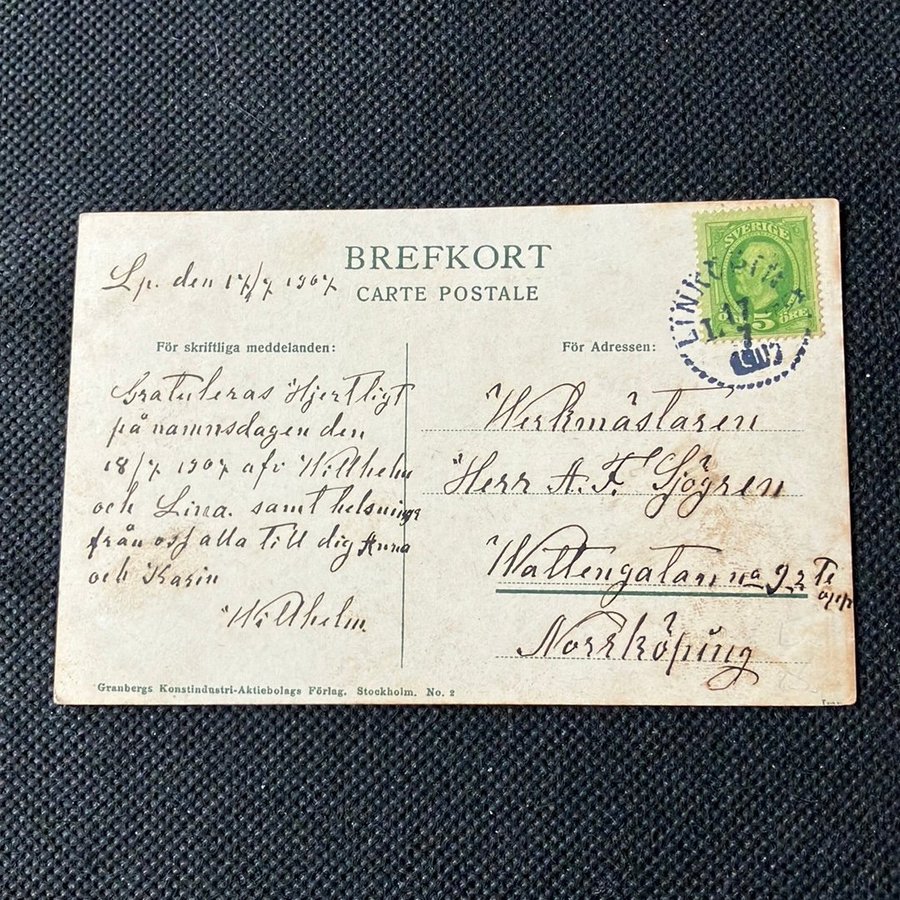 BREFKORT
CARTE POSTALE
Lp. den 17/7 1907
För skriftliga meddelanden:
Gratuleras Hjertligt
på namnsdagen den
18/7 1907 afv Willhelm
och Lina. samt helsning
från oss alla till dig Anna
och Karin
Willhelm.
Granbergs Konstindustri-Aktiebolags Förlag. Stockholm. No. 2
SVERIGE
5 ÖRE
LINKÖPING
17
7
1907
För Adressen:
Werkmästaren
Herr A. F. Sjögren
Wattengatan
Norrköping